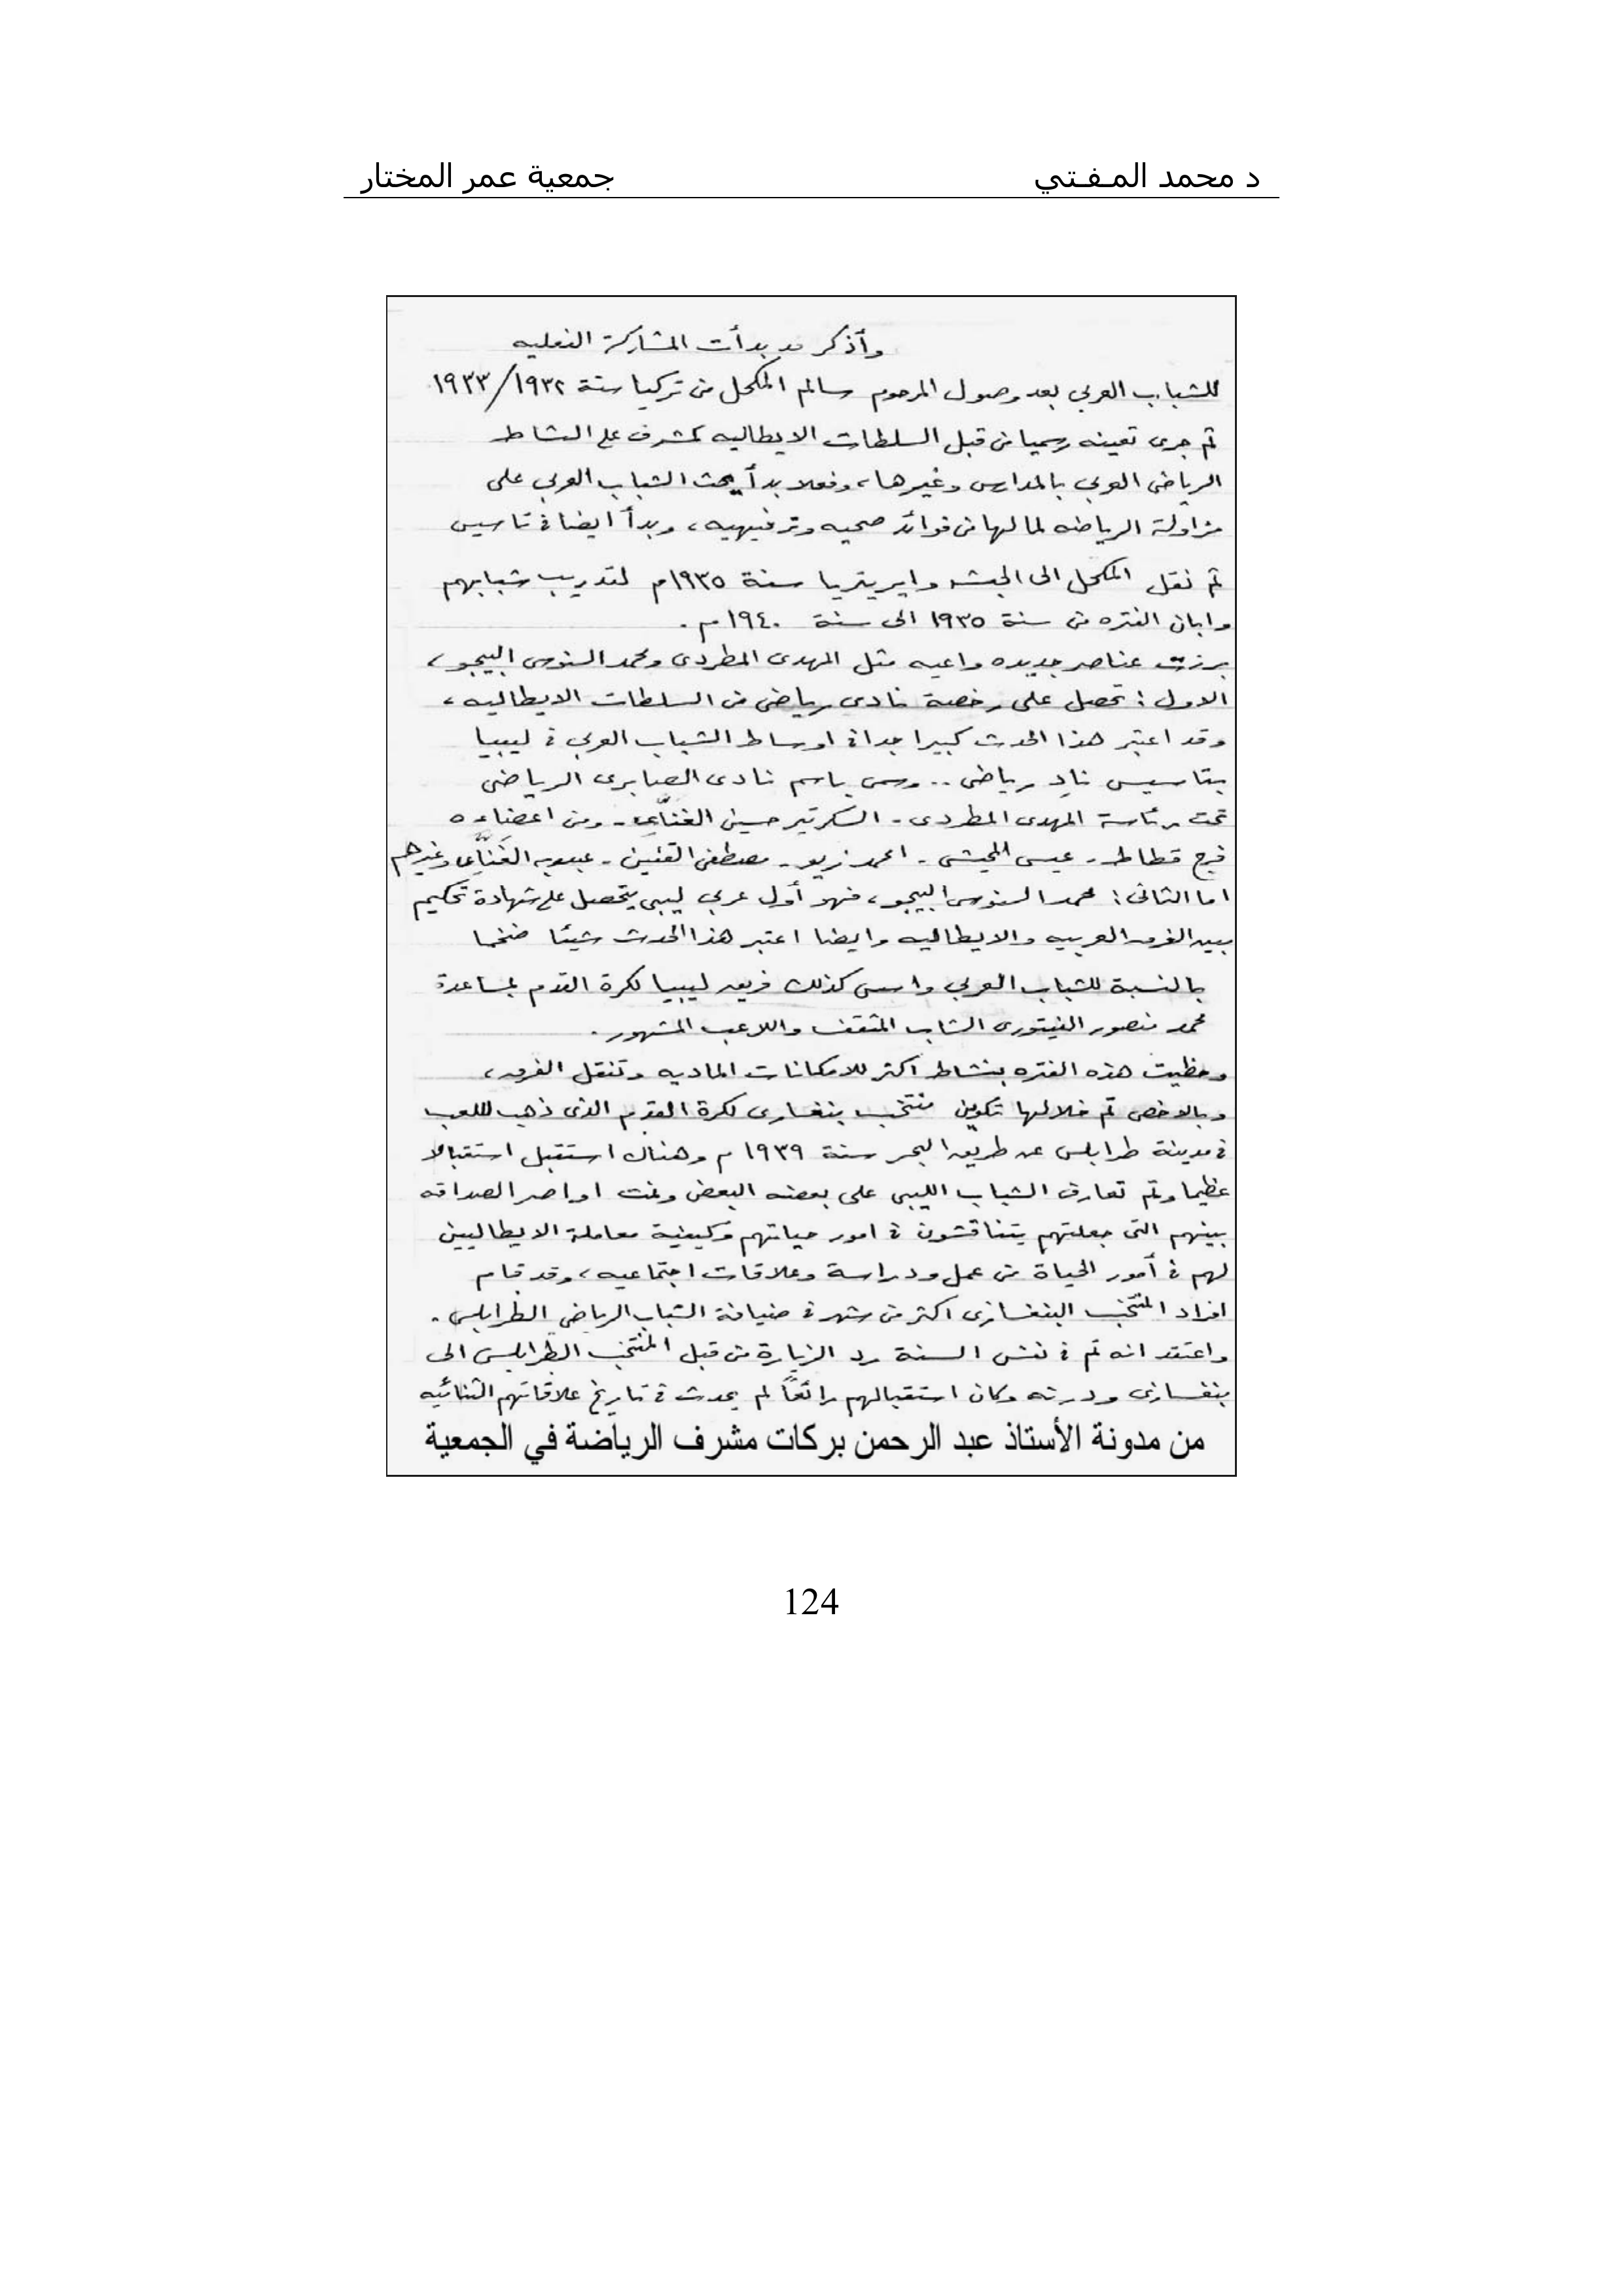 د محمد المـفـتي
جمعية عمر المختار
وأذكر قد بدأت المشاركة الفعليه
للشباب العربي بعد وصول المرحوم سالم المكحل من تركيا سنة ١٩٣٢/١٩٣٣
ثم جرى تعينه رسميا من قبل السلطات الايطاليه كمشرف على النشاط
الرياضى العربي بالمدارس وغيرها، وفعلا بدأ يحث الشباب العربي على
مزاولة الرياضه لما لها من فوائد صحيه وترفيهيه، وبدأ ايضا فى تاسيس
ثم نقل المكحل الى الحبشه وايريتريا سنة ١٩٣٥م لتدريب شبابهم
وابان الفتره من سنة ١٩٣٥ الى سنة ١٩٤٠م.
برزت عناصر جديده واعيه مثل المهدى المطردى ومحمد السنوسى البيجو،
الاول: تحصل على رخصة نادى رياضى من السلطات الايطاليه،
وقد اعتبر هذا الحدث كبيرا جدا فى اوساط الشباب العربي فى ليبيا
بتاسيس نادٍ رياضى.. وسمى باسم نادى الصابرى الرياضى
تحت رئاسة المهدى المطردى - السكرتير حسين الغنّاى - ومن اعضاءه
فرج قطاط - عيسى - احمد زيو - مصطفى القنين - عبدربه الغَنّاى وغيرهم
اما الثانى: محمد السنوسى البيجو، فهو أول عربي ليبى يتحصل على شهادة تحكيم
بين الفرق العربيه والايطاليه وايضا اعتبر هذا الحدث شيئا ضخما
بالنسبة للشباب العربي واسس كذلك فريق ليبيا لكرة القدم بمساعدة
محمد منصور الفيتورى الشاب المثقف واللاعب المشهور.
وحظيت هذه الفتره بنشاط اكثر للامكانات الماديه وتنقل الفرق،
وبالاخص تم خلالها تكوين منتخب بنغازى لكرة القدم الذى ذهب لللعب
فى مدينة طرابلس عن طريق البحر سنة ١٩٣٩ م وهناك استقبل استقبالا
عظيما وتم تعارف الشباب الليبى على بعضه البعض ونمت اواصر الصداقه
بينهم التى جعلتهم يتناقشون فى امور حياتهم وكيفية معاملة الايطاليين
لهم فى أمور الحياة من عمل ودراسة وعلاقات اجتماعيه، وقد قام
افراد المنتخب البنغازى اكثر من شهر فى ضيافة الشباب الرياضى الطرابلسى.
واعتقد انه تم فى نفس السنة رد الزيارة من قبل المنتخب الطرابلسى الى
بنغازى ودرنه وكان استقبالهم رائعاً لم يحدث فى تاريخ علاقاتهم الثنائيه
من مدونة الأستاذ عبد الرحمن بركات مشرف الرياضة في الجمعية
124